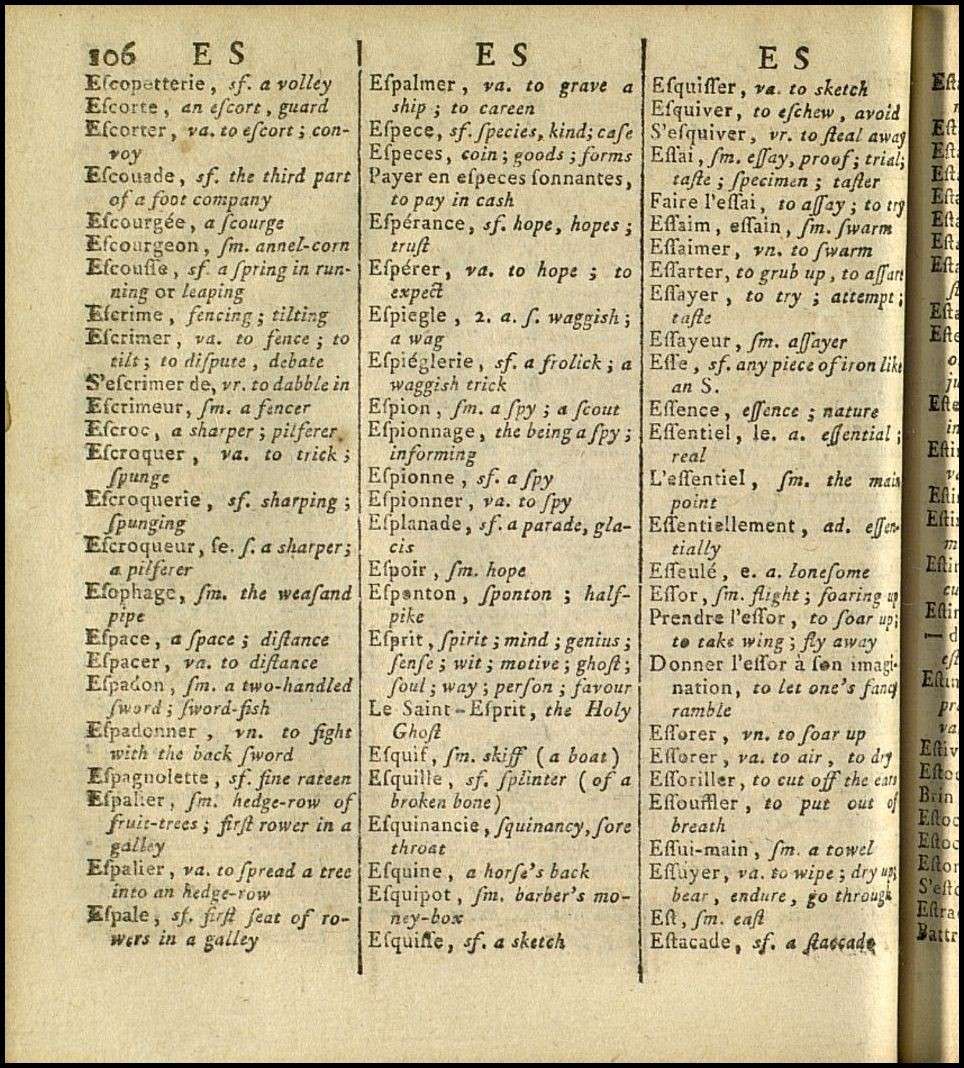 106 E S
Eſcopetterie, sf. a volley
Eſcorte, an eſcort, guard
Eſcorter, va. to eſcort; con-
voy
Eſcouade, sf. the third part
of a foot company
Eſcourgée, a ſcourge
Eſcourgeon, ſm. annel-corn
Eſcouſſe, sf. a ſpring in run-
ning or leaping
Eſcrime, fencing; tilting
Eſcrimer, va. to fence; to
tilt; to diſpute, debate
S'eſcrimer de, vr. to dabble in
Eſcrimeur, ſm. a fencer
Eſcroc, a sharper; pilferer
Eſcroquer, va. to trick;
ſpunge
Eſcroquerie, sf. sharping;
ſpunging
Eſcroqueur, ſe. ſ. a sharper;
a pilferer
Eſophage, ſm. the weaſand
pipe
Eſpace, a ſpace; diſtance
Eſpacer, va. to diſtance
Eſpadon, ſm. a two-handled
ſword; ſword-fish
Eſpadonner, vn. to fight
with the back ſword
Eſpagnolette, sf. fine rateen
Eſpalier, ſm. hedge-row of
fruit-trees; firſt rower in a
galley
Eſpalier, va. to ſpread a tree
into an hedge-row
Eſpale, sf. firſt ſeat of ro-
wers in a galley
E S
Eſpalmer, va. to grave a
ship; to careen
Eſpece, sf. ſpecies, kind; caſe
Eſpeces, coin; goods; forms
Payer en eſpeces ſonnantes,
to pay in cash
Eſpérance, sf. hope, hopes;
truſt
Eſpérer, va. to hope; to
expect
Eſpiegle, 2. a. ſ. waggish;
a wag
Eſpiéglerie, sf. a frolick; a
waggish trick
Eſpion, ſm. a ſpy; a ſcout
Eſpionnage, the being a ſpy;
informing
Eſpionne, sf. a ſpy
Eſpionner, va. to ſpy
Eſplanade, sf. a parade, gla-
cis
Eſpoir, ſm. hope
Eſponton, ſponton; half-
pike
Eſprit, ſpirit; mind; genius;
ſenſe; wit; motive; ghoſt;
ſoul; way; perſon; favour
Le Saint-Eſprit, the Holy
Ghoſt
Eſquif, ſm. skiff (a boat)
Eſquille, sf. ſplinter (of a
broken bone)
Eſquinancie, ſquinancy, ſore
throat
Eſquine, a horſe's back
Eſquipot, ſm. barber's mo-
ney-box
Eſquiſſe, sf. a sketch
E S
Eſquiſſer, va. to sketch
Eſquiver, to eſchew, avoid
S'eſquiver, vr. to ſteal away
Eſſai, ſm. eſſay, proof; trial;
taſte; ſpecimen; taſter
Faire l'eſſai, to aſſay; to try
Eſſaim, eſſain, ſm. ſwarm
Eſſaimer, vn. to ſwarm
Eſſarter, to grub up, to aſſart
Eſſayer, to try; attempt;
taſte
Eſſayeur, ſm. aſſayer
Eſſe, sf. any piece of iron like
an S.
Eſſence, eſſence; nature
Eſſentiel, le. a. eſſential;
real
L'eſſentiel, ſm. the main
point
Eſſentiellement, ad. eſſen-
tially
Eſſeulé, e. a. loneſome
Eſſor, ſm. flight; ſoaring up
Prendre l'eſſor, to ſoar up;
to take wing; fly away
Donner l'eſſor à ſon imagi-
nation, to let one's fancy
ramble
Eſſorer, vn. to ſoar up
Eſſorer, va. to air, to dry
Eſſoriller, to cut off the ears
Eſſouffler, to put out of
breath
Eſſui-main, ſm. a towel
Eſſuyer, va. to wipe; dry up;
bear, endure, go through
Eſt, ſm. eaſt
Eſtacade, sf. a ſtaccado